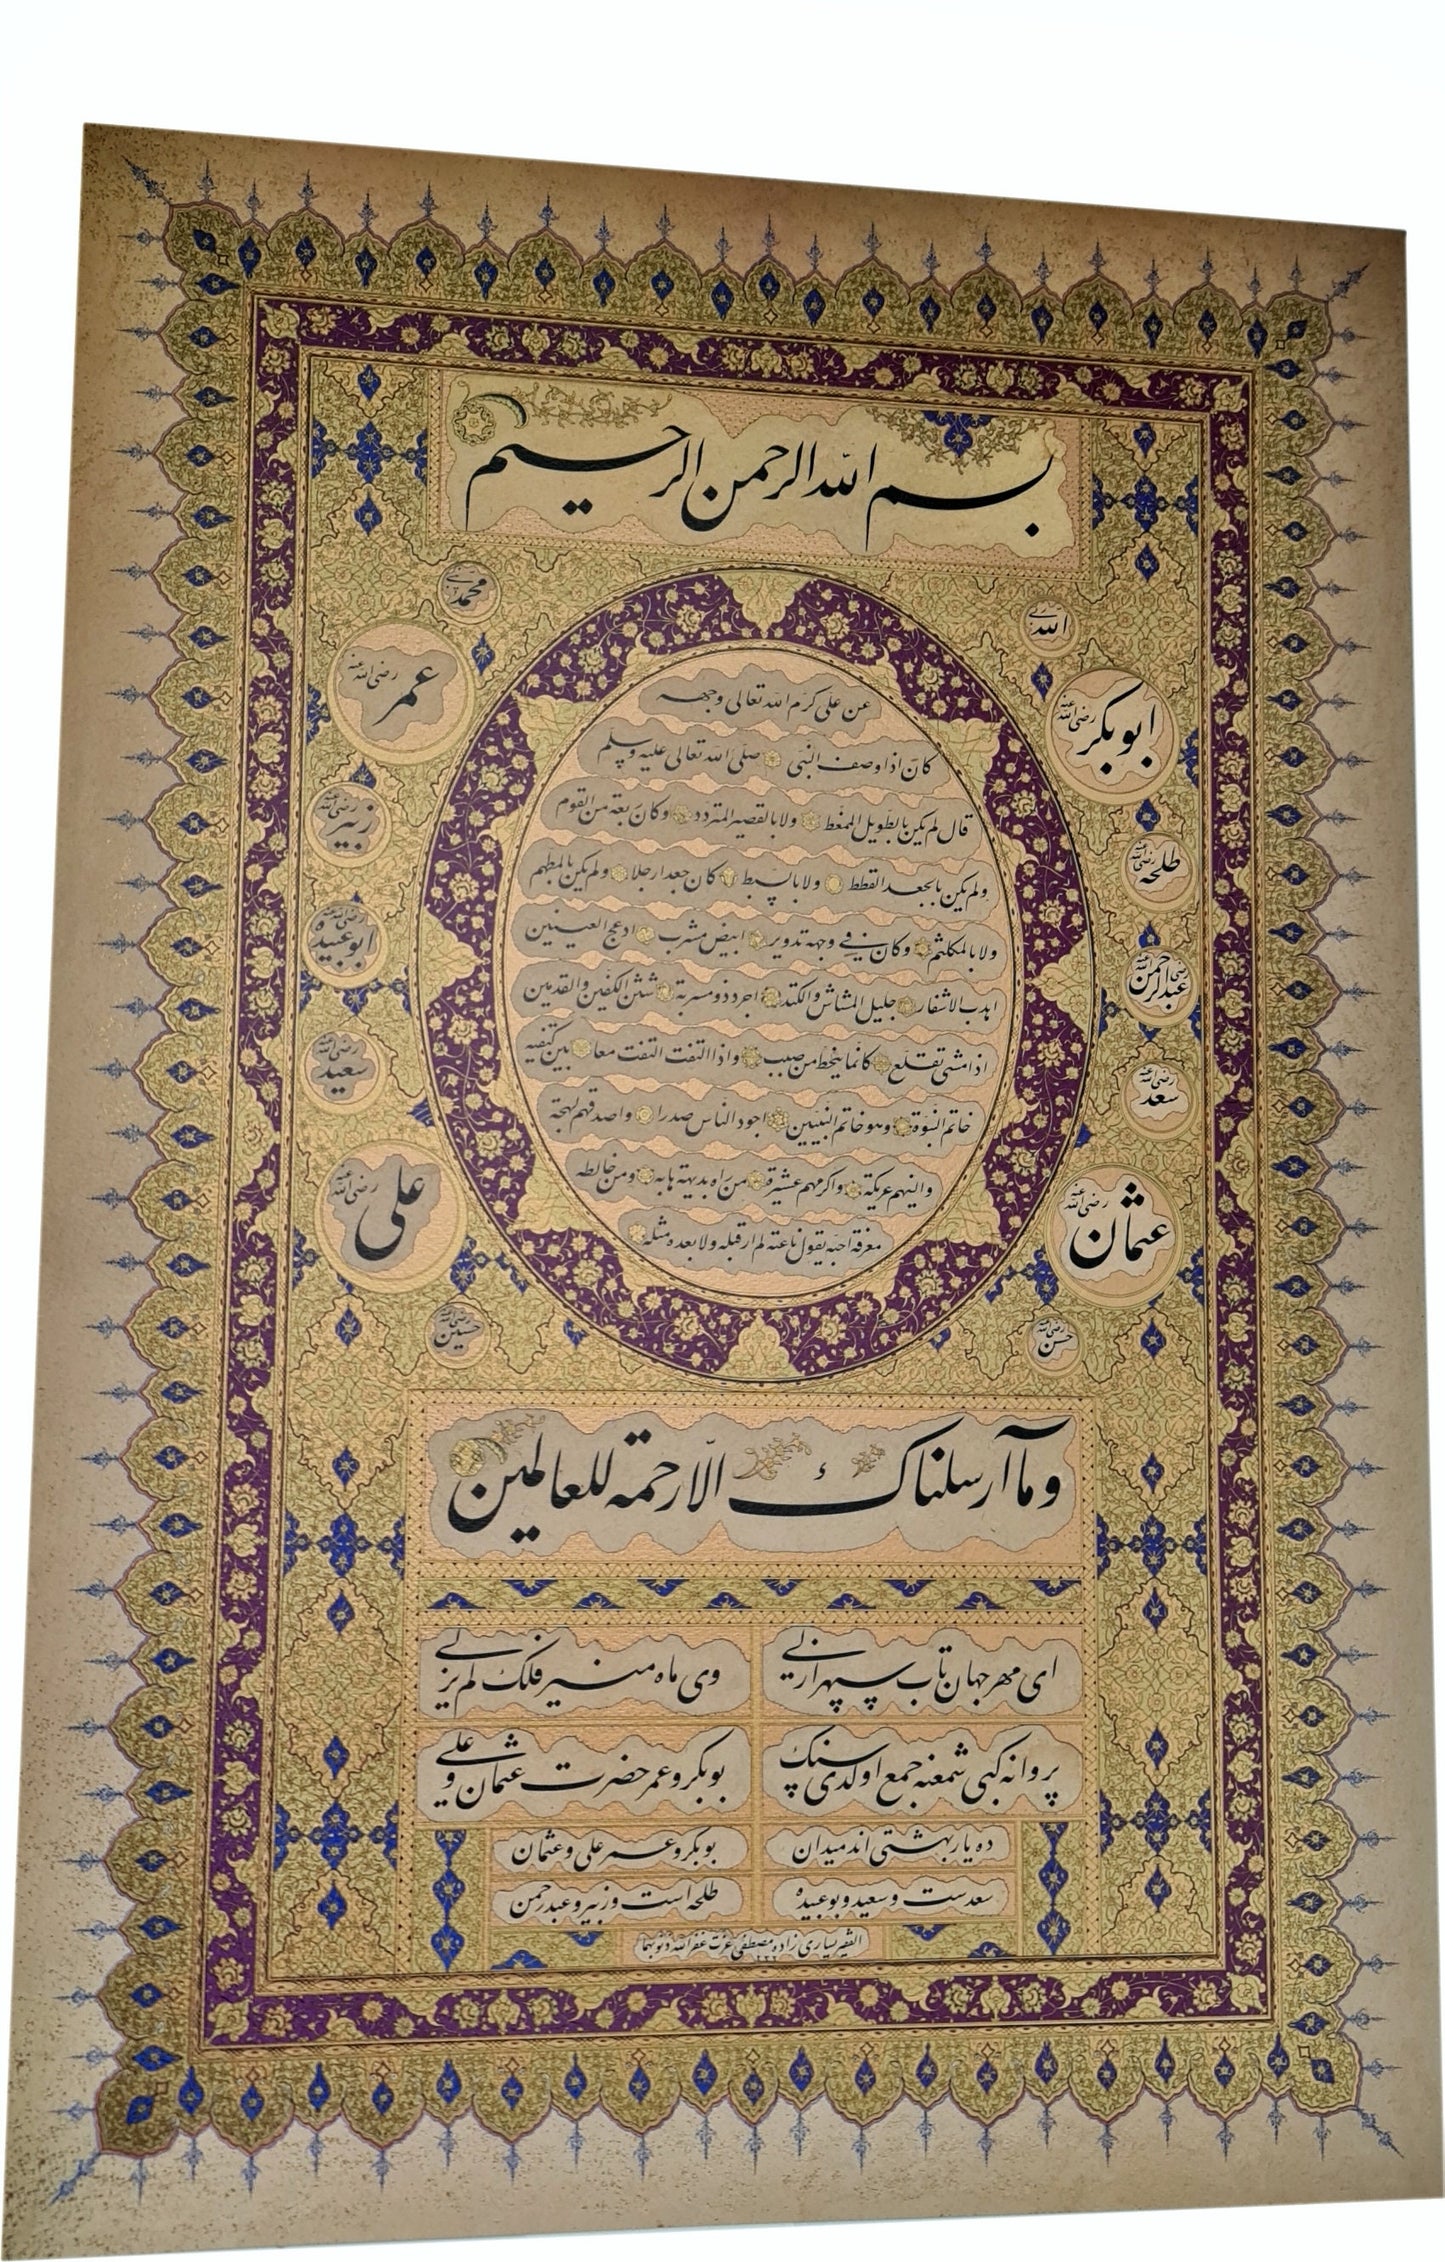 بسم الله الرحمن الرحيم
الله
محمد
ابو بكر رضى الله عنه
عمر رضى الله عنه
طلحه رضى الله عنه
زبير رضى الله عنه
عبد الرحمن رضى الله عنه
ابو عبيده رضى الله عنه
سعد رضى الله عنه
سعيد رضى الله عنه
عثمان رضى الله عنه
على رضى الله عنه
حسن رضى الله عنه
حسين رضى الله عنه
عن على كرم الله تعالى وجهه
كان اذا وصف النبى صلى الله تعالى عليه وسلم
قال لم يكن بالطويل الممغط ولا بالقصير المتردد وكان ربعة من القوم
ولم يكن بالجعد القطط ولا بالسبط كان جعدا رجلا ولم يكن بالمطهم
ولا بالمكلثم وكان فى وجهه تدوير ابيض مشرب ادعج العينين
اهدب الاشفار جليل المشاش والكتد اجرد ذو مسربة شثن الكفين والقدمين
اذا مشى تقلع كانما ينحط من صبب واذا التفت التفت معا بين كتفيه
خاتم النبوة وهو خاتم النبيين اجود الناس صدرا واصدقهم لهجة
والينهم عريكة واكرمهم عشيرة من راه بديهة هابه ومن خالطه
معرفة احبه يقول ناعته لم ار قبله ولا بعده مثله
وما ارسلناك الا رحمة للعالمين
اى مهر جهان تاب سپهر ازلى وى ماه منير فلك لم يزلى
پروانه كبى شمعنه جمع اولدى سنك بوبكر و عمر حضرت عثمان و على
ده يار بهشتى اند ميدان بوبكر و عمر على و عثمان
سعدست و سعيد و بو عبيده طلحه است و زبير و عبد رحمن
الفقير يسارى زاده مصطفى عزت غفر الله ذنوبهما